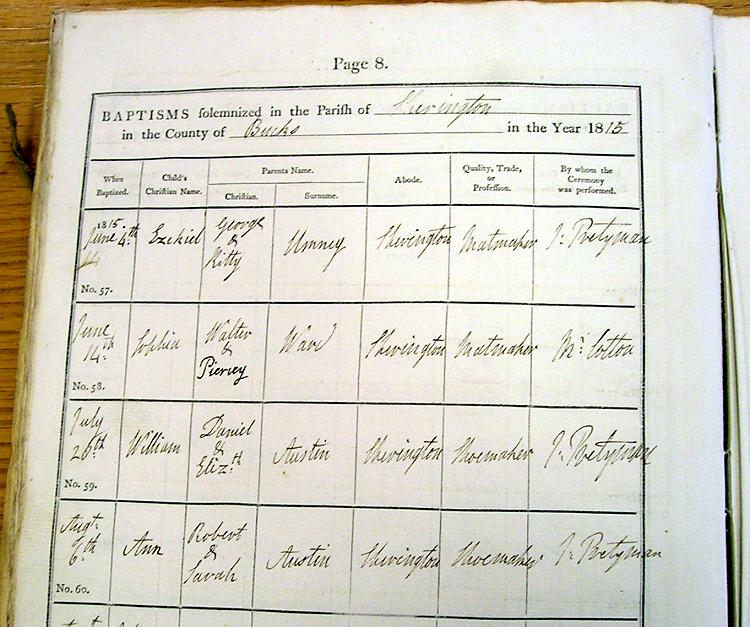 Page 8.
BAPTISMS solemnized in the Parish of Sherington
in the County of Bucks in the Year 1815
When Baptized. Child's Christian Name. Parents Name. Abode. Quality, Trade, or Profession. By whom the Ceremony was performed.
Christian. Surname.
1815. June 4th Ezekiel George & Kitty Umney Sherington Matmaker J: Pretyman
No. 57.
June 14th Sophia Walter & Piercey Sherington Matmaker Mr: Cotton
No. 58.
July 28th William Daniel & Elizth Austin Sherington Shoemaker J: Pretyman
No. 59.
Augt 6th Ann Robert & Sarah Austin Sherington Shoemaker J: Pretyman
No. 60.